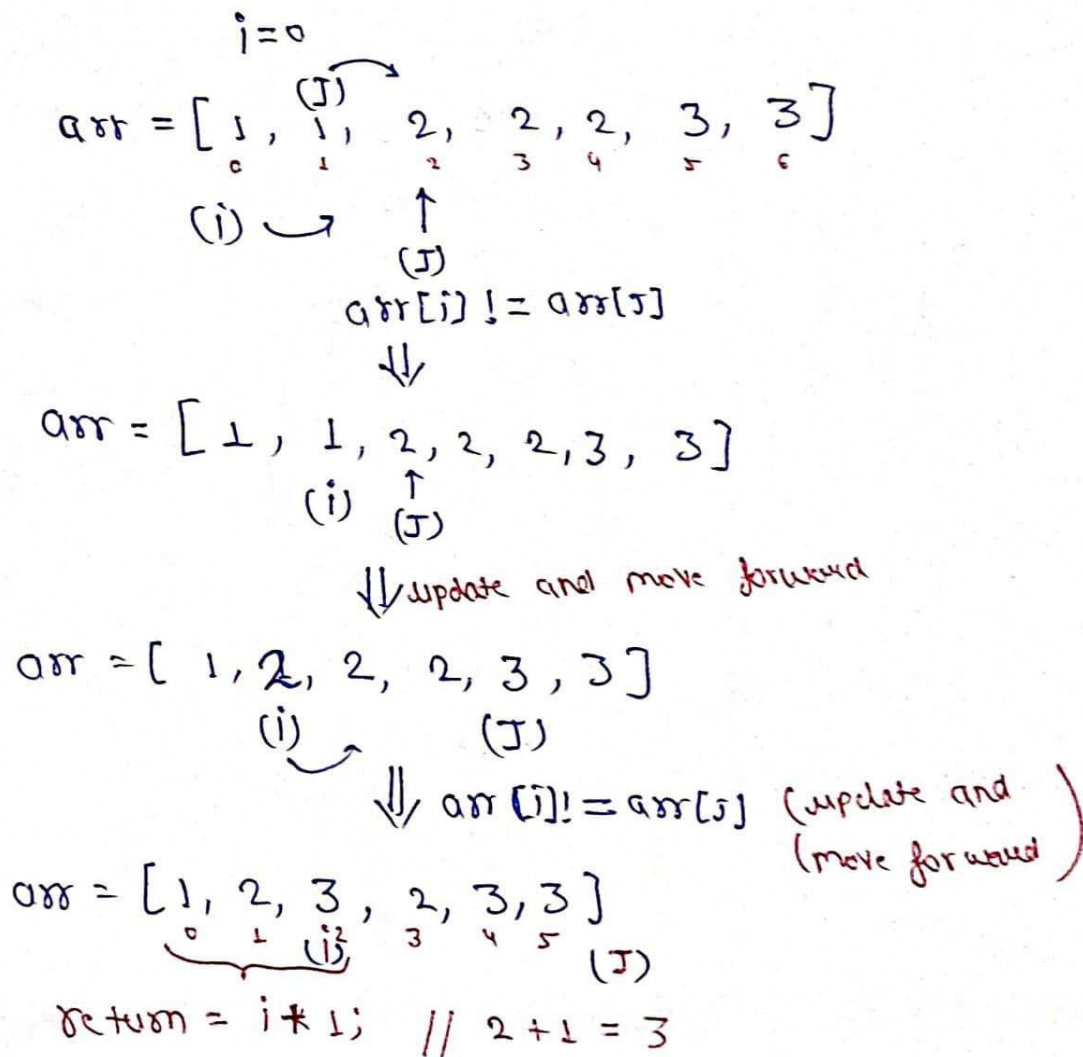 i=0
(J)
arr = [ 1, 1, 2, 2, 2, 3, 3 ]
0 1 2 3 4 5 6
(i) ↑
(J)
arr[i] != arr[J]
⇓
arr = [ 1, 1, 2, 2, 2, 3, 3 ]
(i) ↑
(J)
⇓ update and move forward
arr = [ 1, 2, 2, 2, 3, 3 ]
(i) (J)
⇓ arr [i] != arr[J] (update and
(move forward)
arr = [ 1, 2, 3, 2, 3, 3 ]
0 1 2 3 4 5
(i) (J)
return = i + 1; // 2 + 1 = 3